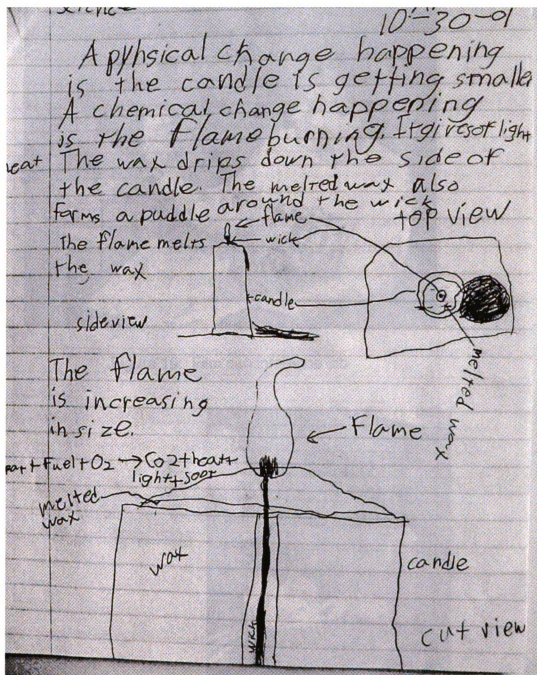 Science
10-30-01
A pyhsical change happening
is the candle is getting smaller
A chemical change happening
is the flame burning. It gives of light
heat The wax drips down the side of
the candle. The melted wax also
forms a puddle around the wick
flame
top view
The flame melts
wick
the wax
candle
side view
melted wax
The flame
is increasing
in size.
Flame
heat + Fuel + O2 → Co2 + heat +
light + soot
melted
wax
wax
candle
wick
cut view